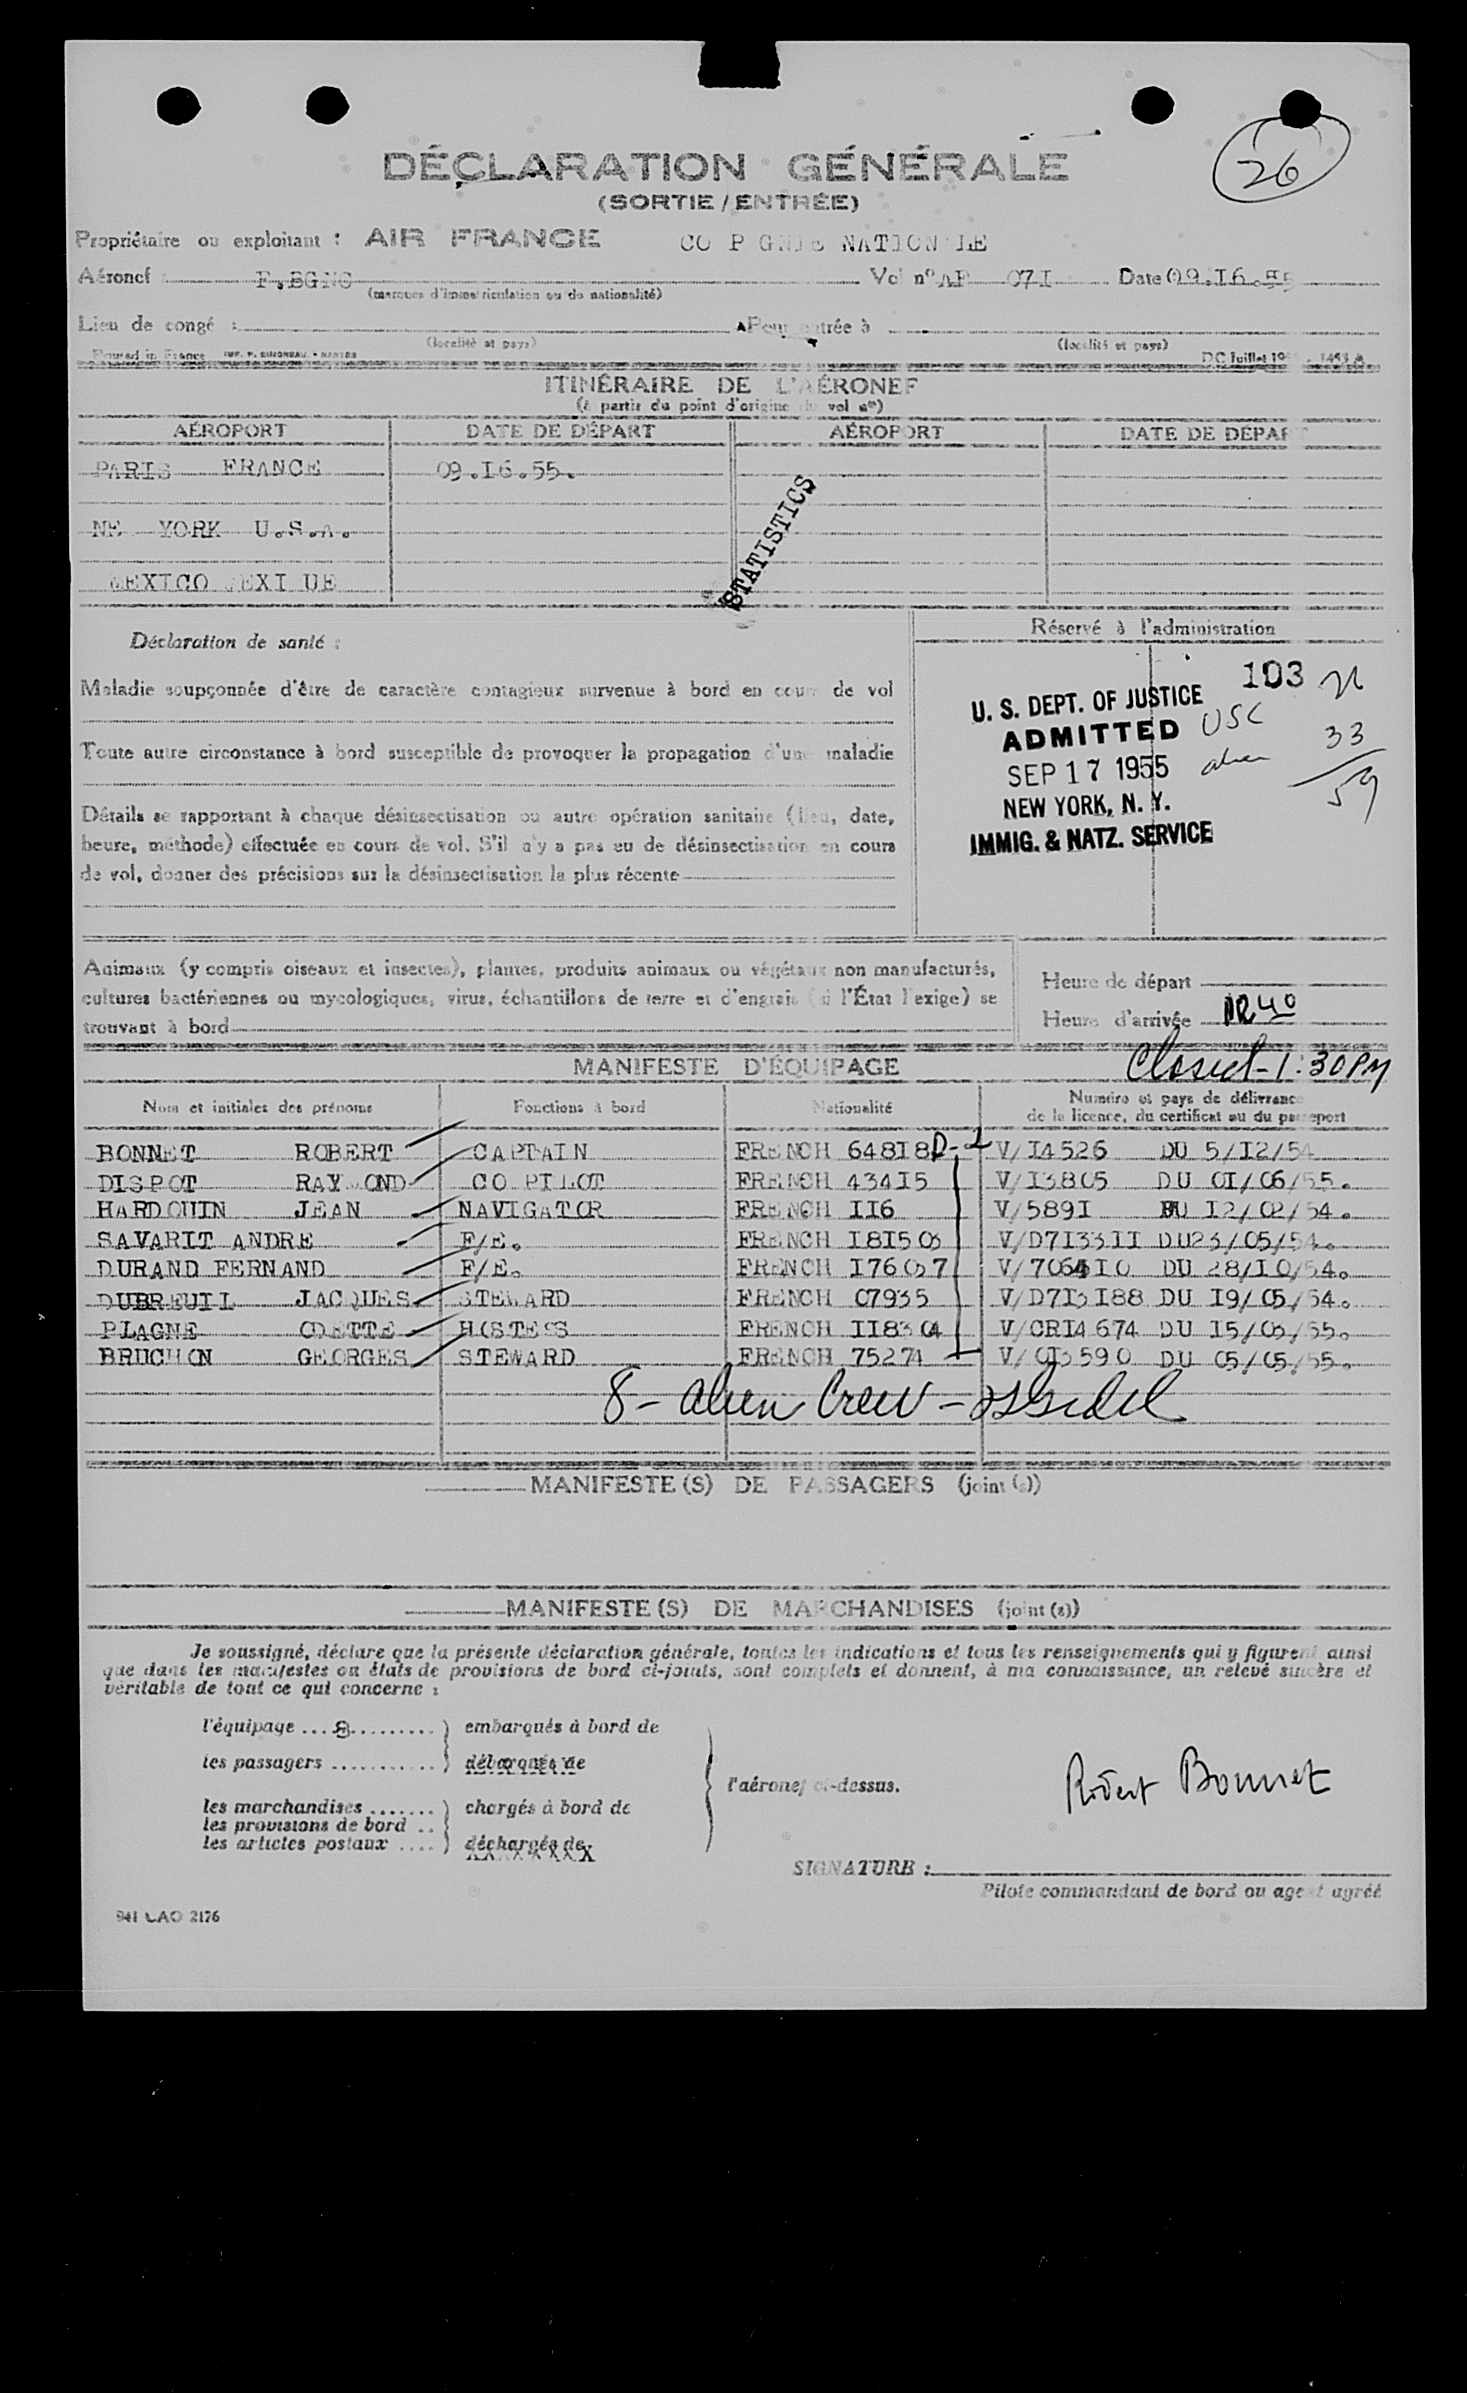 26
DÉCLARATION GÉNÉRALE
(SORTIE / ENTRÉE)
Propriétaire ou exploitant : AIR FRANCE CO P GNIE NATION LE
Aéronef : F.BGNG Vol nº AF 071 Date 09.I6.55
(marques d'immatriculation ou de nationalité)
Lieu de congé : Pour entrée à
(localité et pays) (localité et pays)
Printed in France DC Juillet
ITINÉRAIRE DE L'AÉRONEF
(à partir du point d'origine du vol nº)
AÉROPORT DATE DE DÉPART AÉROPORT DATE DE DÉPART
PARIS FRANCE 09.I6.55.
STATISTICS
NE YORK U.S.A.
MEXICO MEXI UE
Déclaration de santé : Réservé à l'administration
Maladie soupçonnée d'être de caractère contagieux survenue à bord en cours de vol
103 21
U. S. DEPT. OF JUSTICE
ADMITTED USC 33
SEP 17 1955 alien 59
NEW YORK, N. Y.
IMMIG. & NATZ. SERVICE
Toute autre circonstance à bord susceptible de provoquer la propagation d'une maladie
Détails se rapportant à chaque désinsectisation ou autre opération sanitaire (lieu, date,
heure, méthode) effectuée en cours de vol. S'il n'y a pas eu de désinsectisation en cours
de vol, donner des précisions sur la désinsectisation la plus récente
Animaux (y compris oiseaux et insectes), plantes, produits animaux ou végétaux non manufacturés,
cultures bactériennes ou mycologiques, virus, échantillons de terre et d'engrais (si l'État l'exige) se
trouvant à bord
Heure de départ
Heure d'arrivée 1240
Closed - 1:30PM
MANIFESTE D'ÉQUIPAGE
Nom et initiales des prénoms Fonctions à bord Nationalité Numéro et pays de délivrance
de la licence, du certificat ou du passeport
BONNET ROBERT CAPTAIN FRENCH 64818 D-1 V/I4526 DU 5/I2/54
DISPOT RAYMOND CO PILOT FRENCH 434I5 V/I3805 DU 0I/06/55.
HARDOUIN JEAN NAVIGATOR FRENCH II6 V/589I DU I2/02/54.
SAVARIT ANDRE F/E. FRENCH I8I503 V/D7I33II DU23/05/54.
DURAND FERNAND F/E. FRENCH I76037 V/706410 DU 28/I0/54.
DUBREUIL JACQUES STEWARD FRENCH 07935 V/D7I3I88 DU I9/05/54.
PLAGNE ODETTE HOSTESS FRENCH II8304 V/CRI4674 DU I5/03/55.
BRUCHON GEORGES STEWARD FRENCH 75274 V/0I3590 DU 05/05/55.
8 - alien Crew -
MANIFESTE(S) DE PASSAGERS (joint(s))
MANIFESTE(S) DE MARCHANDISES (joint(s))
Je soussigné, déclare que la présente déclaration générale, toutes les indications et tous les renseignements qui y figurent ainsi
que dans les manifestes ou états de provisions de bord ci-joints, sont complets et donnent, à ma connaissance, un relevé sincère et
véritable de tout ce qui concerne :
l'équipage ... 8 ......... embarqués à bord de
les passagers ........... débarqués de
l'aéronef ci-dessus.
les marchandises ....... chargés à bord de
les provisions de bord ..
les articles postaux .... déchargés de
Robert Bonnet
SIGNATURE :
Pilote commandant de bord ou agent agréé
941 CAO 2176